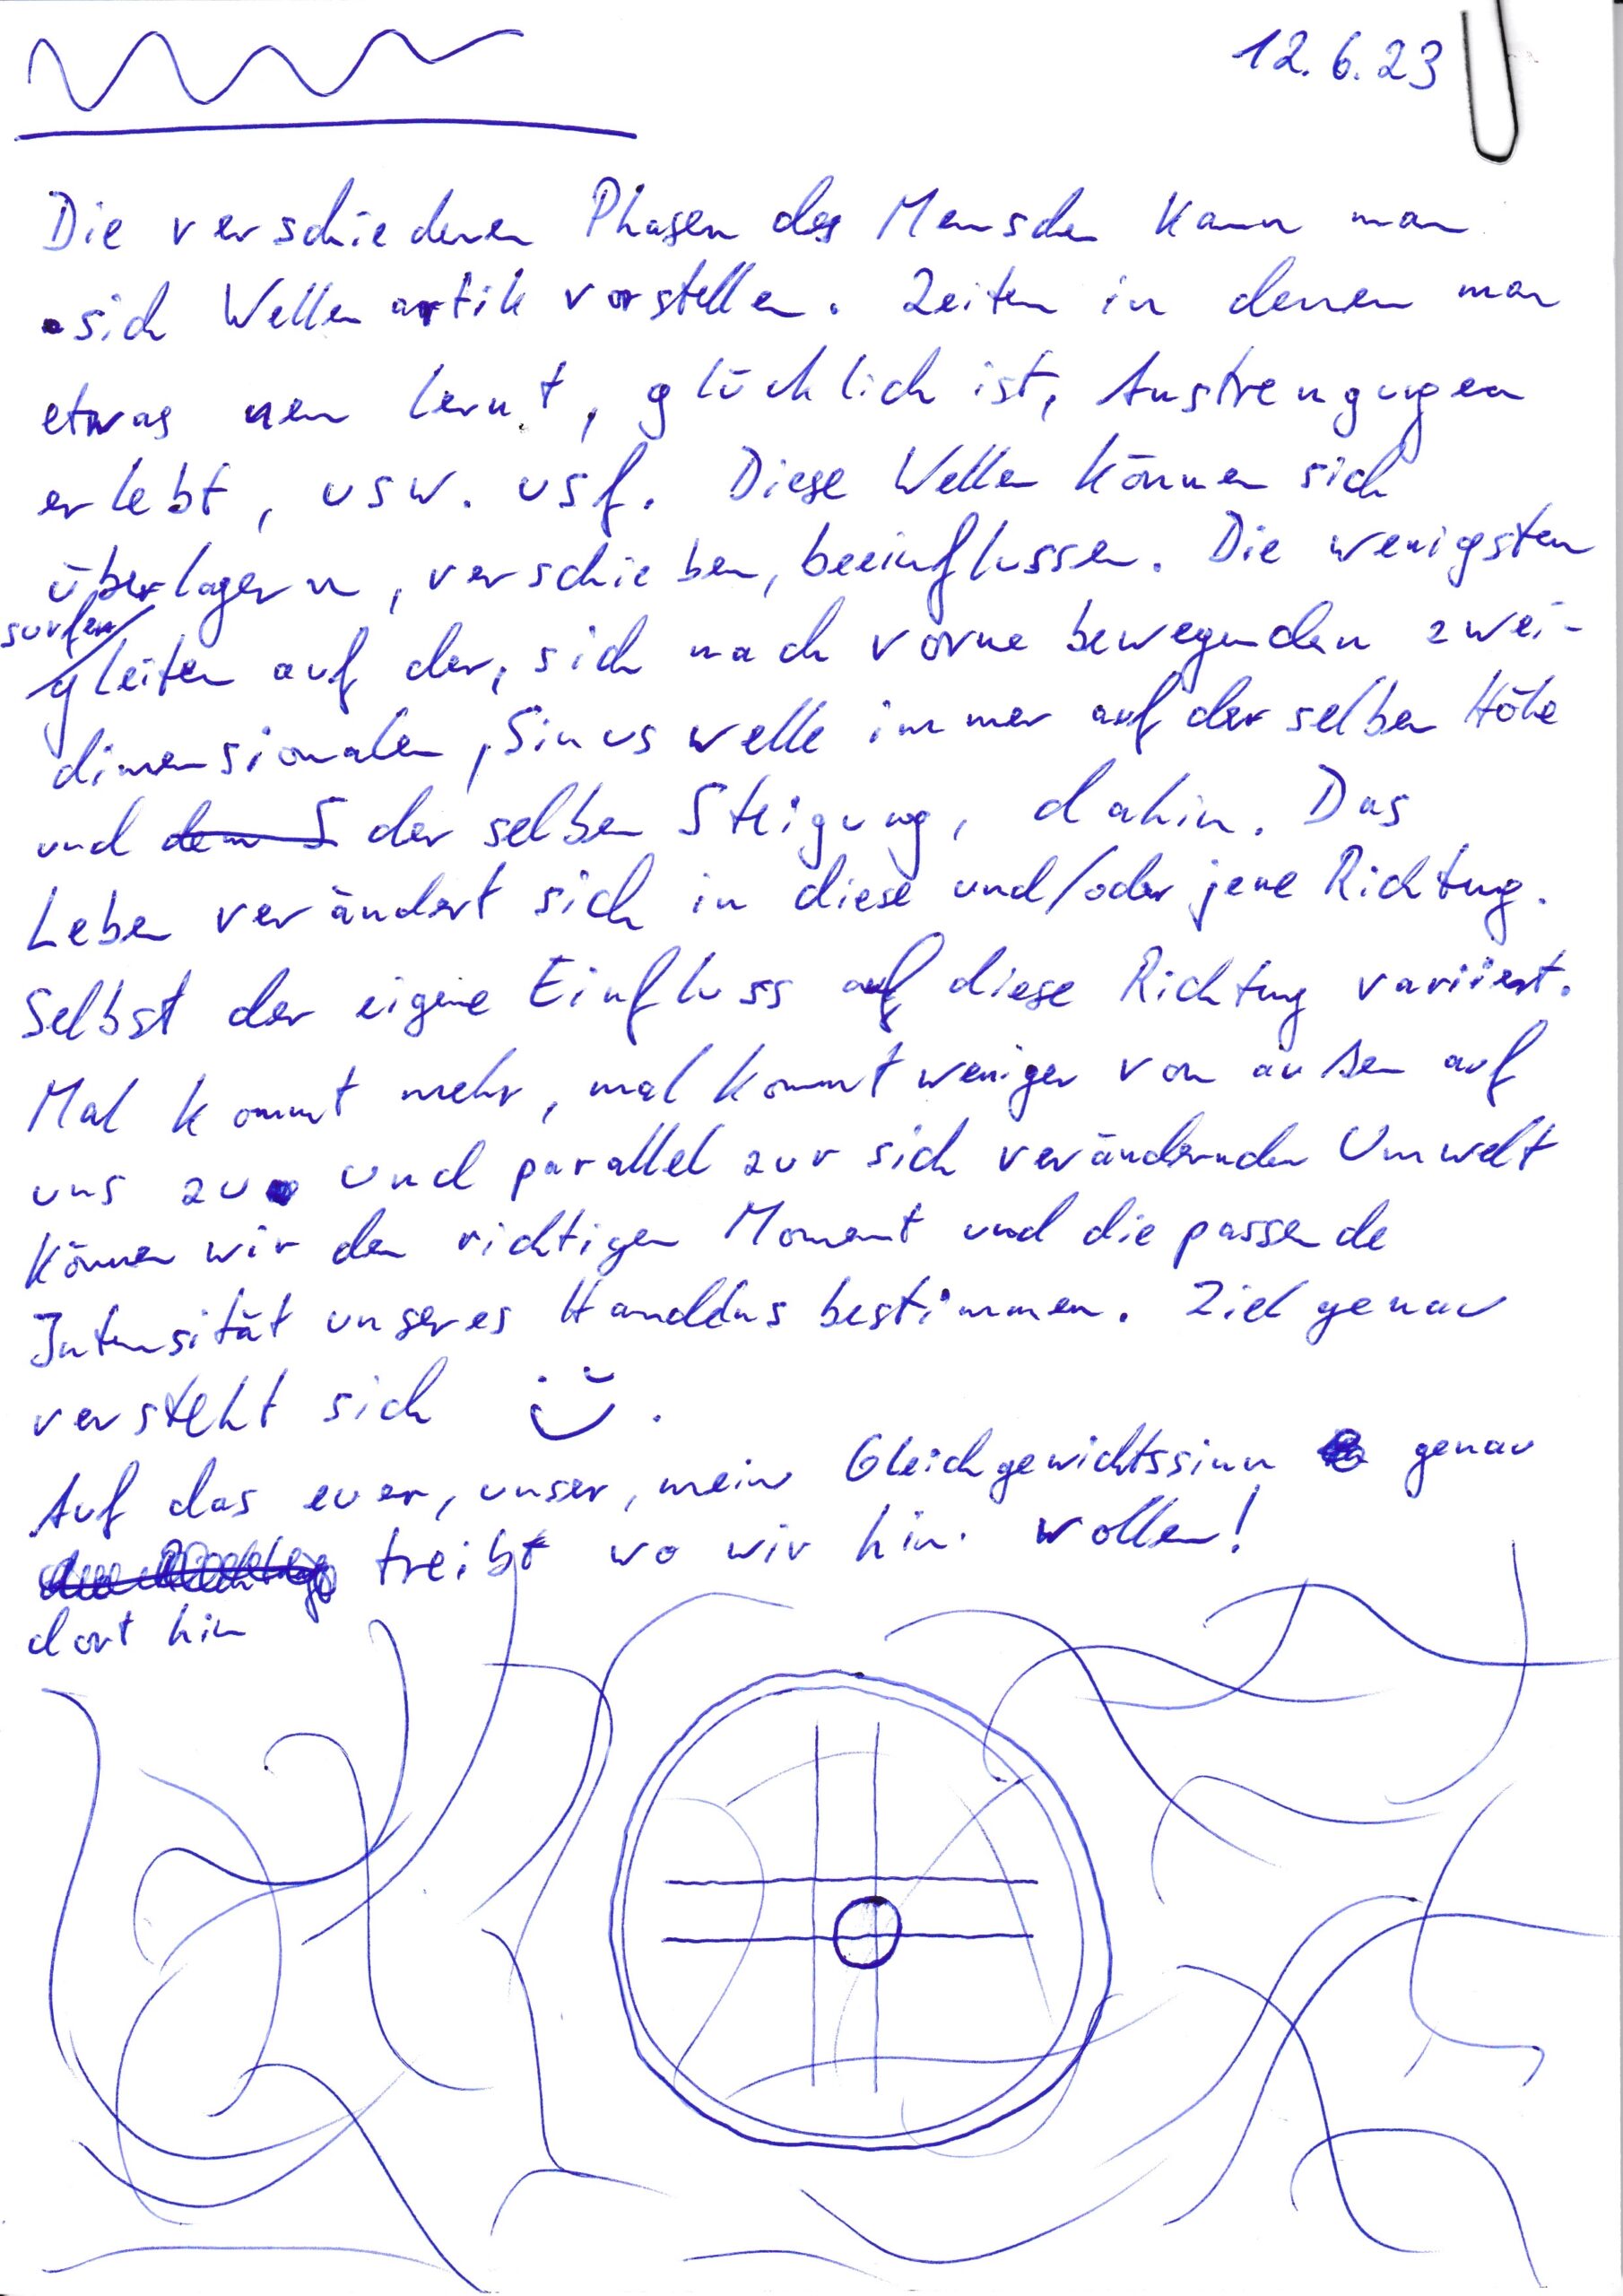 12.6.23
Die verschiedenen Phasen des Menschen kann man
sich Wellen artik vorstellen. Zeiten in denen man
etwas neu lernt, glücklich ist, Anstrengungen
erlebt, usw. usf. Diese Wellen können sich
überlagern, verschieben, beeinflussen. Die wenigsten
surfen/
gleiten auf der, sich nach vorne bewegenden zwei-
dimensionalen, Sinuswelle immer auf der selben Höhe
und dem S der selben Steigung, dahin. Das
Leben verändert sich in diese und/oder jene Richtung.
Selbst der eigene Einfluss auf diese Richtung variiert.
Mal kommt mehr, mal kommt weniger von außen auf
uns zu und parallel zur sich verändernden Umwelt
können wir den richtigen Moment und die passende
Intensität unseres Handelns bestimmen. Zielgenau
versteht sich .
Auf das euer, unser, mein Gleichgewichtssinn genau
treibt wo wir hin wollen!
dort hin